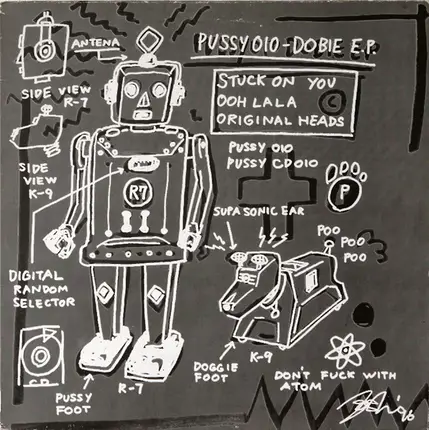 PUSSY 010 - DOBIE E.P.
ANTENA
STUCK ON YOU
OOH LALA
ORIGINAL HEADS
C
SIDE VIEW
R-7
PUSSY 010
PUSSY CD 010
SIDE
VIEW
K-9
R7
P
SUPA SONIC EAR
POO
POO
POO
DIGITAL
RANDOM
SELECTOR
CD
PUSSY
FOOT
R-7
DOGGIE
FOOT
K-9
DON'T FUCK WITH
ATOM
'96